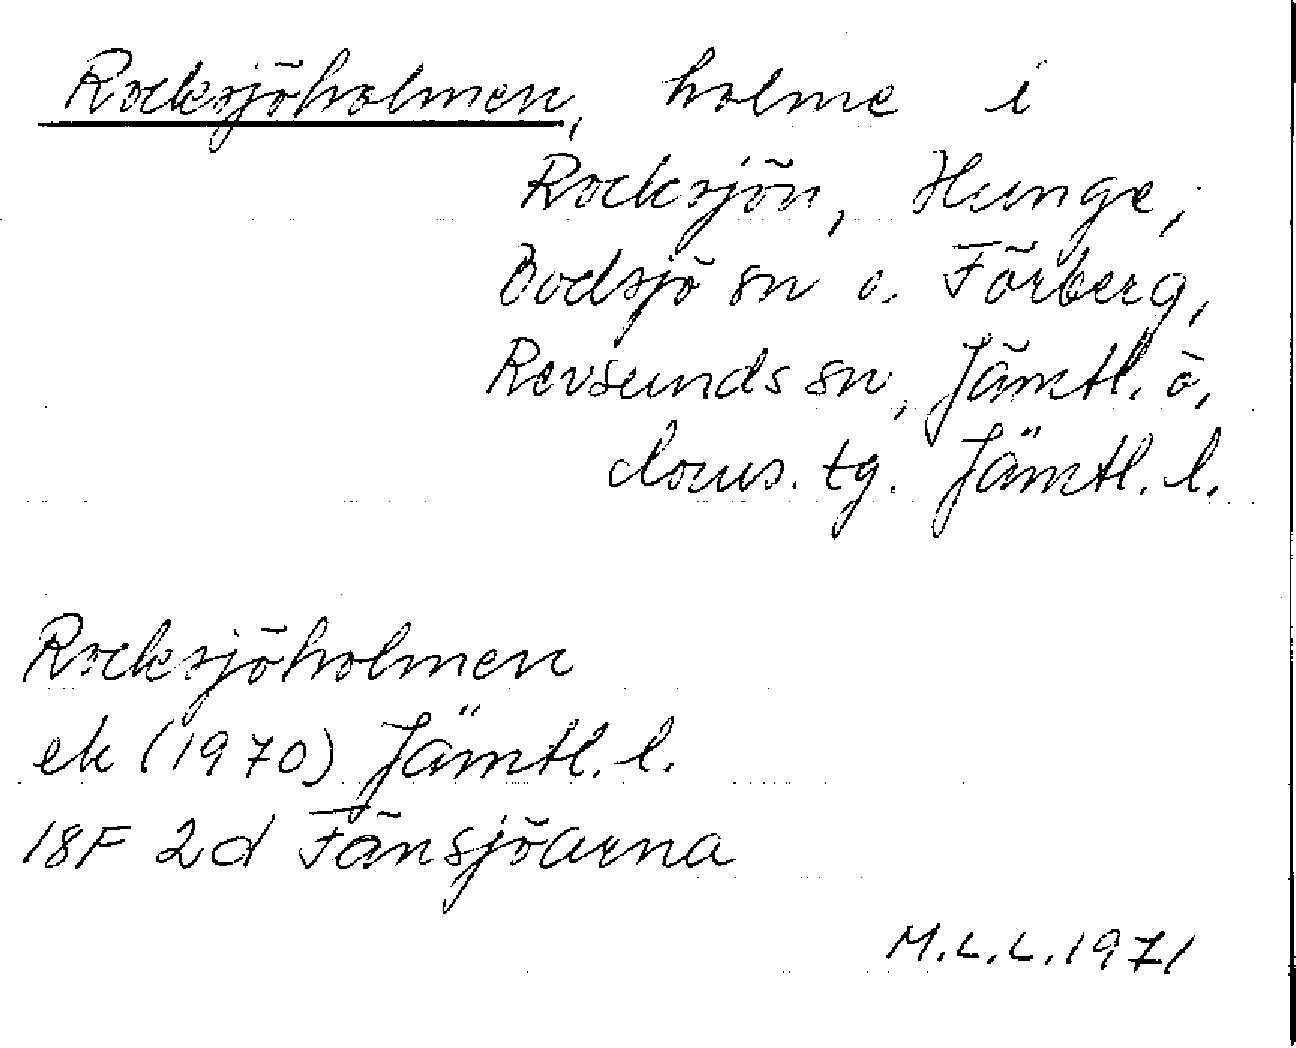 Rocksjöholmen, holme i
Rocksjön, Hunge,
Bodsjö sn o. Förberg,
Revsunds sn, Jämtl. ö.
doms. tg. Jämtl. l.
Rocksjöholmen
ek (1970) Jämtl. l.
18F 2d Fånsjöarna
M.L.L. 1971